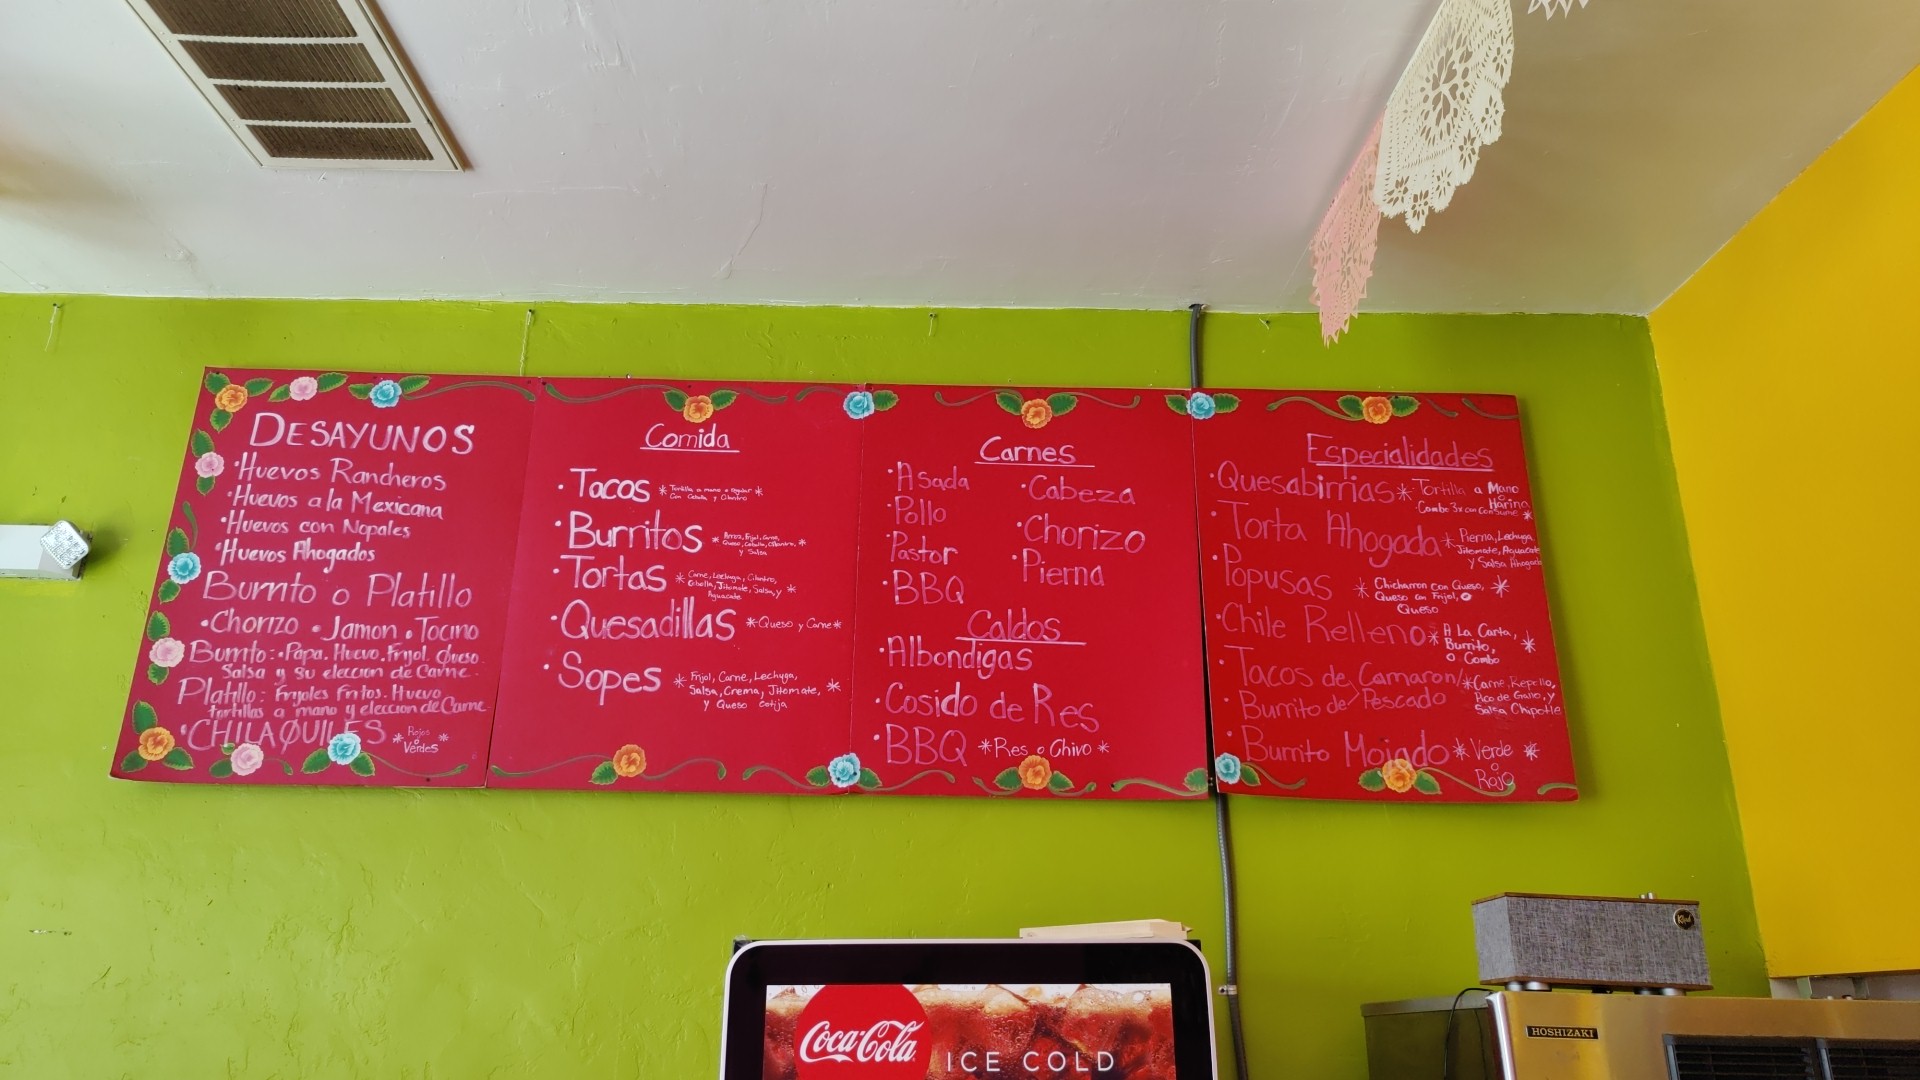 DESAYUNOS
·Huevos Rancheros
·Huevos a la Mexicana
·Huevos con Nopales
·Huevos Ahogados
Burrito o Platillo
·Chorizo ·Jamon ·Tocino
Burrito:·Papa. Huevo. Frijol. Queso.
Salsa y su eleccion de Carne.
Platillo: Frijoles Fritos. Huevo
Tortillas a mano y eleccion de Carne
·CHILAQUILES *Rojos
o
Verdes*
Comida
·Tacos *Tortilla a mano o regular
Con Cebolla y Cilantro*
·Burritos *Arroz, Frijol, Carne,
Queso, Cebolla, Cilantro,
y Salsa*
·Tortas *Carne, Lechuga, Cilantro,
Cibolla, Jitomate, Salsa, y
Aguacate*
·Quesadillas *Queso y Carne*
·Sopes *Frijol, Carne, Lechuga,
Salsa, Crema, Jitomate,
y Queso Cotija*
Carnes
·Asada
·Pollo
·Pastor
·BBQ
·Cabeza
·Chorizo
·Pierna
Caldos
·Albondigas
·Cosido de Res
·BBQ *Res o Chivo*
Especialidades
·Quesabirrias *Tortilla a Mano
o Harina
Combo 3x con Consume*
·Torta Ahogada *Pierna, Lechuga,
Jitomate, Aguacate
y Salsa Ahogada
·Popusas *Chicharron con Queso,
Queso con Frijol, o
Queso*
·Chile Relleno *A La Carta,
Burrito,
o Combo*
·Tacos de Camaron/
·Burrito de Pescado *Carne, Repollo,
Pico de Gallo, y
Salsa Chipotle
·Burrito Mojado *Verde
o
Rojo*
Coca-Cola
ICE COLD
Klipsch
HOSHIZAKI